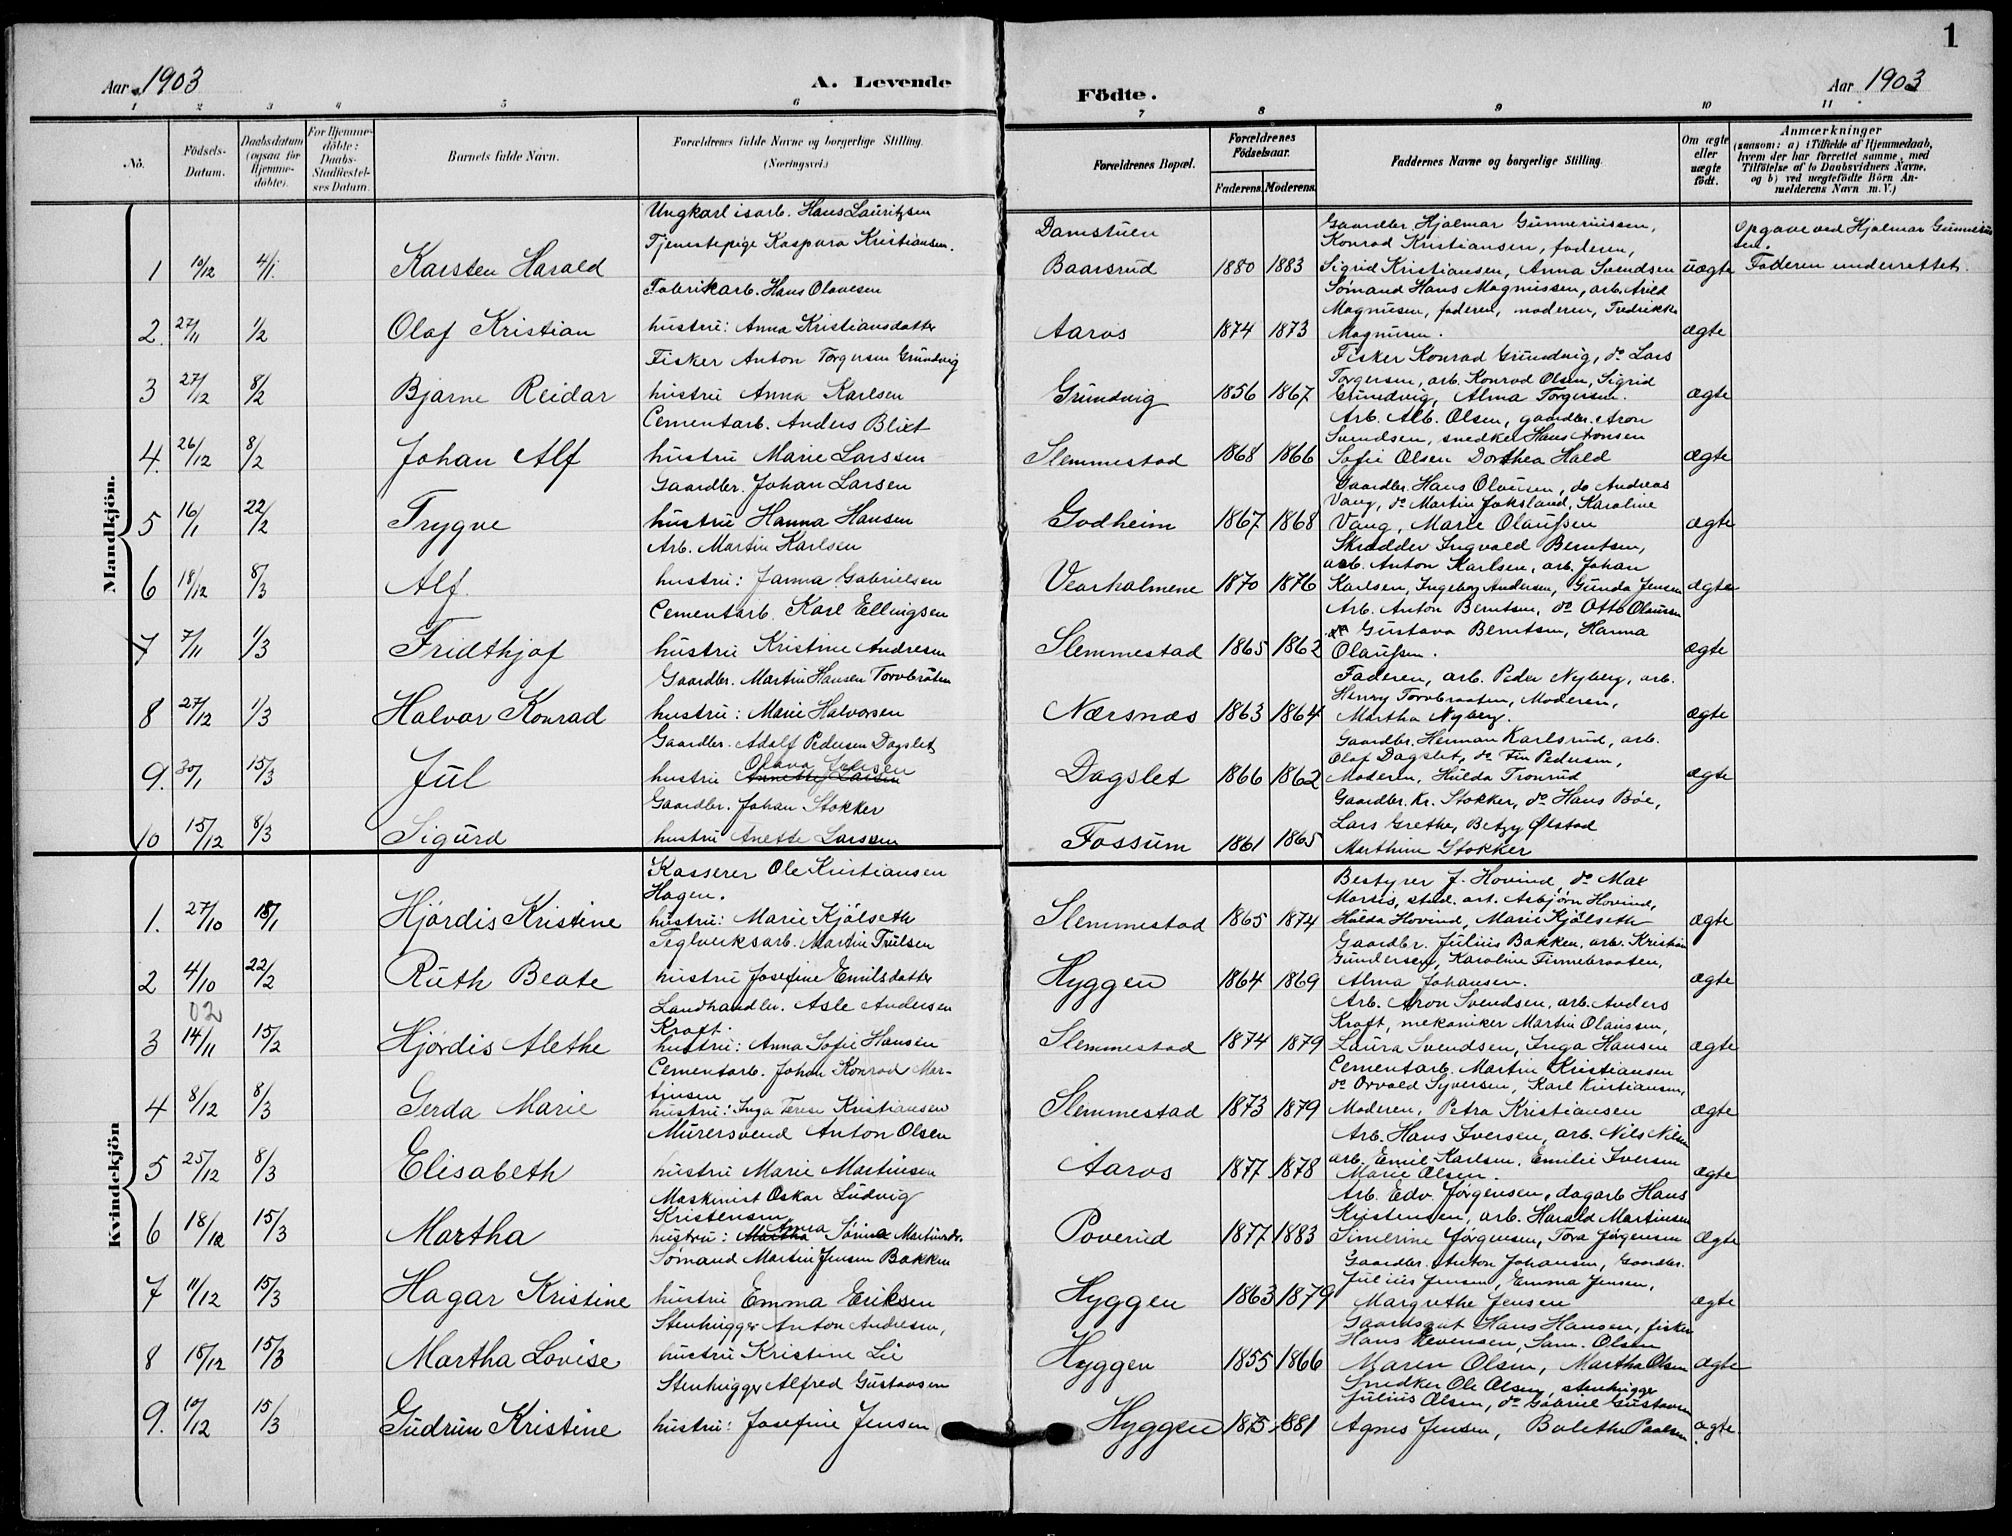 1
Aar 1903
A. Levende
Födte.
Aar 1903
1 2 3 4 5 6 7 8 9 10 11
No.
Födsels-Datum.
Daabsdatum (ogsaa for Hjemmedöbte).
For Hjemmedöbte: Daabs-Stadfæstelses Datum.
Barnets fulde Navn.
Forældrenes fulde Navne og borgerlige Stilling. (Næringsvei.)
Forældrenes Bopæl.
Forældrenes Födselsaar.
Faderens. Moderens.
Faddernes Navne og borgerlige Stilling.
Om ægte eller uægte födt.
Anmærkninger
(saasom: a) i Tilfælde af Hjemmedaab, hvem der har forrettet samme, med Tilföielse af to Daabsvidners Navne, og b) ved uægtefödte Börn Anmelderens Navn m. V.)
Mandkjön.
Ungkarl isarb. Hans Lauritsen
Tjenestepige Kaspara Kristiansen.
1 10/12 4/1. Karsten Harald
Damstuen
Baarsrud 1880 1883
Gaardbr. Hjalmar Gunneriussen,
Konrad Kristiansen, faderen,
Sigrid Kristiansen, Anna Svendsen uægte
Opgave ved Hjalmar Gunneriussen.
Faderen underrettet.
Fabrikarb. Hans Olavesen
2. 27/11 1/2 Olaf Kristian hustru: Anna Kristiansdatter
Aaros 1874 1873
Sömand Hans Magnussen, arb. Arild
Magnusen, faderen, moderen, Fredrikke
Magnusen. ægte
Fisker Anton Torgersen Grundvig
3 27/12 8/2 Bjarne Reidar hustru Anna Karlsen
Grundvig 1856 1867
Fisker Konrad Grundvig, do Lars
Torgersen, arb. Konrad Olsen, Sigrid
Grundvig, Alma Torgersen. ægte
Cementarb. Anders Blixt
4. 26/12 8/2 Johan Alf hustru Marie Larssen
Slemmestad 1868 1866
Arb. Alb. Olsen, gaardbr. Aron
Svendsen, snedker Hans Aronsen
Sofie Olsen Dorthea Hald ægte
Gaardbr. Johan Larsen
5 16/1 22/2 Trygve hustru Hanna Hansen
Godheim 1867 1868
Gaardbr. Hans Olausen, do Andreas
Vang, do Martin Joksland, Karoline
Vang, Marie Olaussen ægte
Arb. Martin Karlsen
6 18/12 8/3 Alf. hustru: Janna Gabrielsen
Vearholmene 1870 1876
Skrædder Ingvald Berntsen,
arb. Anton Karlsen, arb. Johan
Karlsen, Ingeborg Andersen, Gunda Jensen ægte
Cementarb. Karl Ellingsen
7 7/11 1/3 Fridthjof hustru Kristine Andresen
Slemmestad 1865 1862
Arb. Anton Berntsen, do Otto Olaussen
Gustava Berntsen, Hanna
Olaussen. ægte
Gaardbr. Martin Hansen Torvbråten
8 27/12 1/3 Halvar Konrad hustru: Marie Halvorsen
Nærsnæs 1863 1864
Faderen, arb. Peder Nyberg, arb.
Henry Torvbraaten, Moderen,
Martha Nyberg. ægte
Gaardbr. Adolf Pedersen Dagslet
9. 30/1 15/3 Jul hustru Olava Jensen
Dagslet 1866 1862
Gaardbr. Herman Karlsrud, arb.
Olaf Dagslet, do Fin Pedersen,
Moderen, Hulda Tronrud ægte
Gaardbr. Johan Stokker
10 15/12 8/3 Sigurd hustru Anette Larssen
Fossum 1861 1865
Gaardbr. Kr. Stokker, do Hans Böe,
Lars Grethe, Betzy Ølstad
Marthine Stokker
Kvindekjön
Kasserer Ole Kristiansen
Hagen.
1. 27/10 18/1 Hjördis Kristine hustru: Marie Kjölseth
Slemmestad 1865 1874
Bestyrer J. Hovind, do Max
stud. art. Asbjörn Hovind,
Hulda Hovind, Marie Kjölseth ægte
Teglverksarb. Martin Trulsen
2 4/10 22/2 Ruth Beate hustru Josefine Emilsdatter
02
Hyggen 1864 1869
Gaardbr. Julius Bakken, arb. Kristian
Gundersen, Karoline Finnebraaten,
Alma Johansen. ægte
Landhandler. Asle Andersen
Kraft.
3 14/11 15/2 Hjördis Alethe hustru: Anna Sofie Hansen
Slemmestad 1874 1879
Arb. Aron Svendsen, arb. Anders
Kraft, mekaniker Martin Olaussen,
Laura Svendsen, Inga Hansen ægte
Cementarb. Johan Konrad Mar-
tinsen
4 8/12 8/3 Gerda Marie hustru: Inga Terese Kristiansen
Slemmestad 1873 1879
Cementarb. Martin Kristiansen
do Orvald Syversen, Karl Kristiansen,
Moderen, Petra Kristiansen ægte
Murersvend Anton Olsen
5 25/12 8/3 Elisabeth hustru Marie Martinsen
Aaros 1877 1878
Arb. Hans Iversen, arb. Nils Nilsen
arb. Emil Karlsen, Emilie Iversen
Marie Olsen. ægte
Maskinist Oskar Ludvig
Kristensen
6 18/12 15/3 Martha hustru: Martha Anna Sörine Martinsdr.
Poverud 1877 1883
Arb. Edv. Jørgensen, dagarb Hans
Kristensen, arb. Harald Martinsen
Simerine Jørgensen, Tora Jørgensen Ægte
Sömand Martin Jensen Bakken
7 11/12 15/3 Hagar Kristine hustru Emma Eriksen
Hyggen 1863 1879
Gaardbr. Anton Johansen, Gaardbr.
Julius Jensen, Emma Jensen,
Margrethe Jensen ægte
Stenhugger Anton Andresen,
8 18/12 15/3 Martha Lovise hustru Kristine Lie
Hyggen 1855 1866
Gaardsgut Hans Hansen, fisker
Hans Evensen, Sam. Olsen
Maren Olsen, Martha Olsen ægte
Stenhugger Alfred Gustavsen
9. 10/12 15/3 Gudrun Kristine hustru: Josefine Jensen
Hyggen 1875 1881
Snedker Ole Olsen, stenhugger
Julius Olsen, do Gabriel Gustavsen
Agnes Jensen, Bolethe Paulsen ægte.